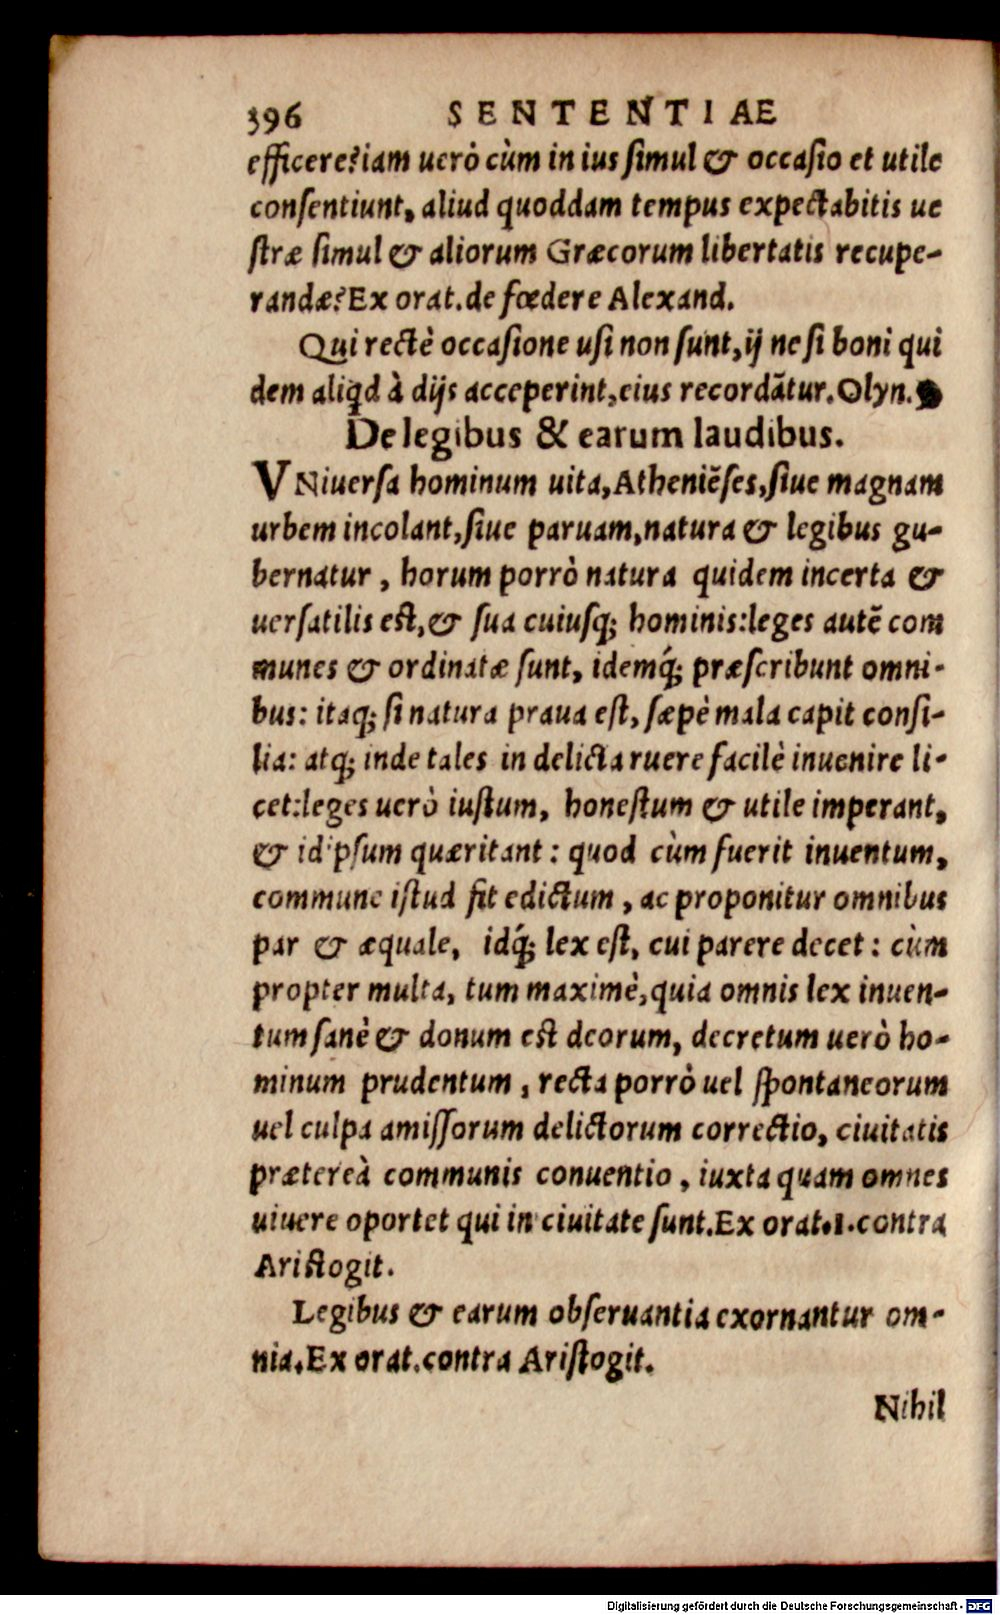 396 SENTENTIAE
efficere?iam uerò cùm in ius ſimul & occaſio et utile
conſentiunt, aliud quoddam tempus expectabitis ue
ſtræ ſimul & aliorum Græcorum libertatis recupe-
randæ?Ex orat.de fœdere Alexand.
Qui rectè occaſione uſi non ſunt,ij ne ſi boni qui
dem aliqd à dijs acceperint,eius recordãtur.Olyn.
De legibus & earum laudibus.
VNiuerſa hominum uita,Atheniẽſes,ſiue magnam
urbem incolant,ſiue paruam,natura & legibus gu-
bernatur, horum porrò natura quidem incerta &
uerſatilis eſt,& ſua cuiuſq; hominis:leges autẽ com
munes & ordinatæ ſunt, idemq́; præſcribunt omni-
bus: itaq; ſi natura praua eſt, ſæpè mala capit conſi-
lia: atq; inde tales in delicta ruere facilè inuenire li-
cet:leges uerò iuſtum, honeſtum & utile imperant,
& id ipſum quæritant: quod cùm fuerit inuentum,
commune iſtud fit edictum, ac proponitur omnibus
par & æquale, idq́; lex eſt, cui parere decet: cùm
propter multa, tum maximè,quia omnis lex inuen-
tum ſanè & donum eſt deorum, decretum uerò ho-
minum prudentum, recta porrò uel ſpontaneorum
uel culpa amiſſorum delictorum correctio, ciuitatis
prætereà communis conuentio, iuxta quam omnes
uiuere oportet qui in ciuitate ſunt.Ex orat.1.contra
Ariſtogit.
Legibus & earum obſeruantia exornantur om-
nia.Ex orat.contra Ariſtogit.
Nihil
Digitalisierung gefördert durch die Deutsche Forschungsgemeinschaft - DFG